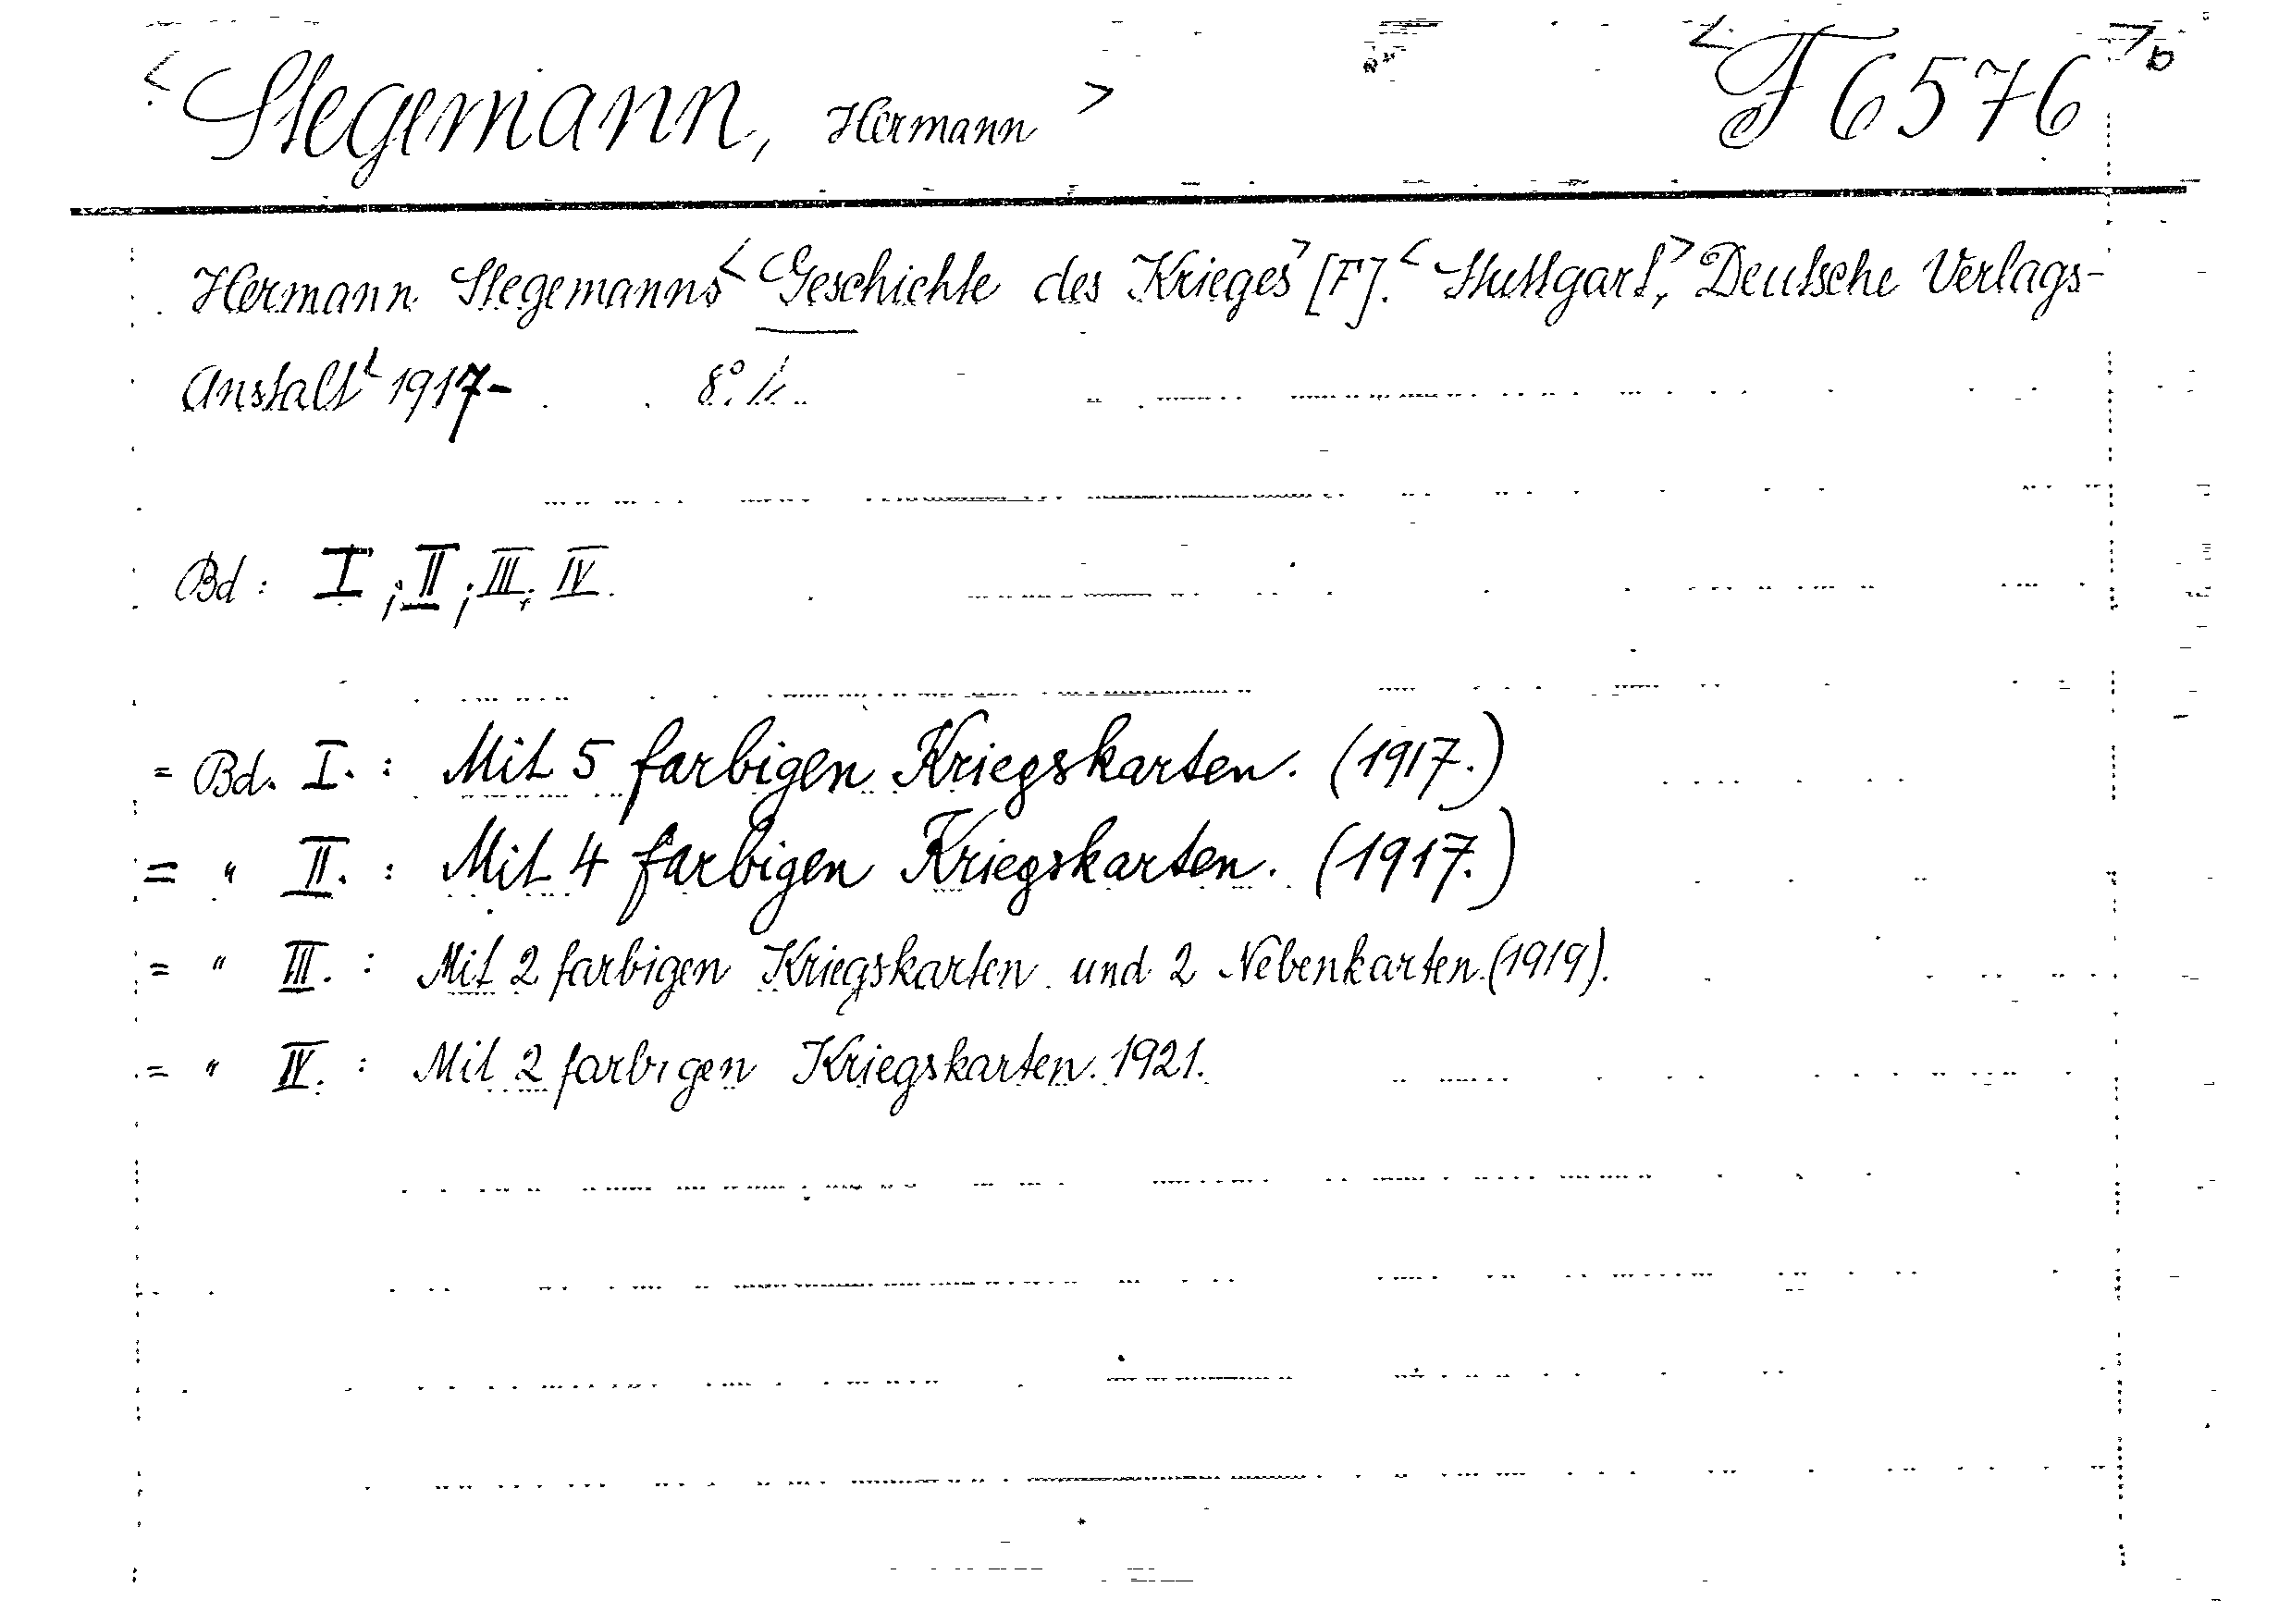 < Stegemann, Hermann > < F 6576 > b
Hermann Stegemanns < Geschichte des Krieges > [F]. < Stuttgart, > Deutsche Verlags-
Anstalt < 1917- 8°.
Bd: I; II; III; IV.
= Bd. I. : Mit 5 farbigen Kriegskarten. (1917.)
= " II. : Mit 4 farbigen Kriegskarten. (1917.)
= " III. : Mit 2 farbigen Kriegskarten und 2 Nebenkarten. (1919).
= " IV. : Mit 2 farbigen Kriegskarten. 1921.